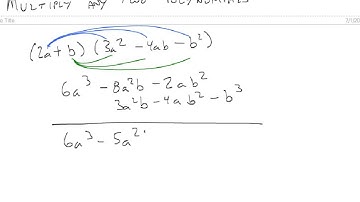 MULTIPLY ANY TWO POLYNOMIALS
(2a + b) (3a² - 4ab - b²)
6a³ - 8a²b - 2ab²
3a²b - 4ab² - b³
6a³ - 5a²